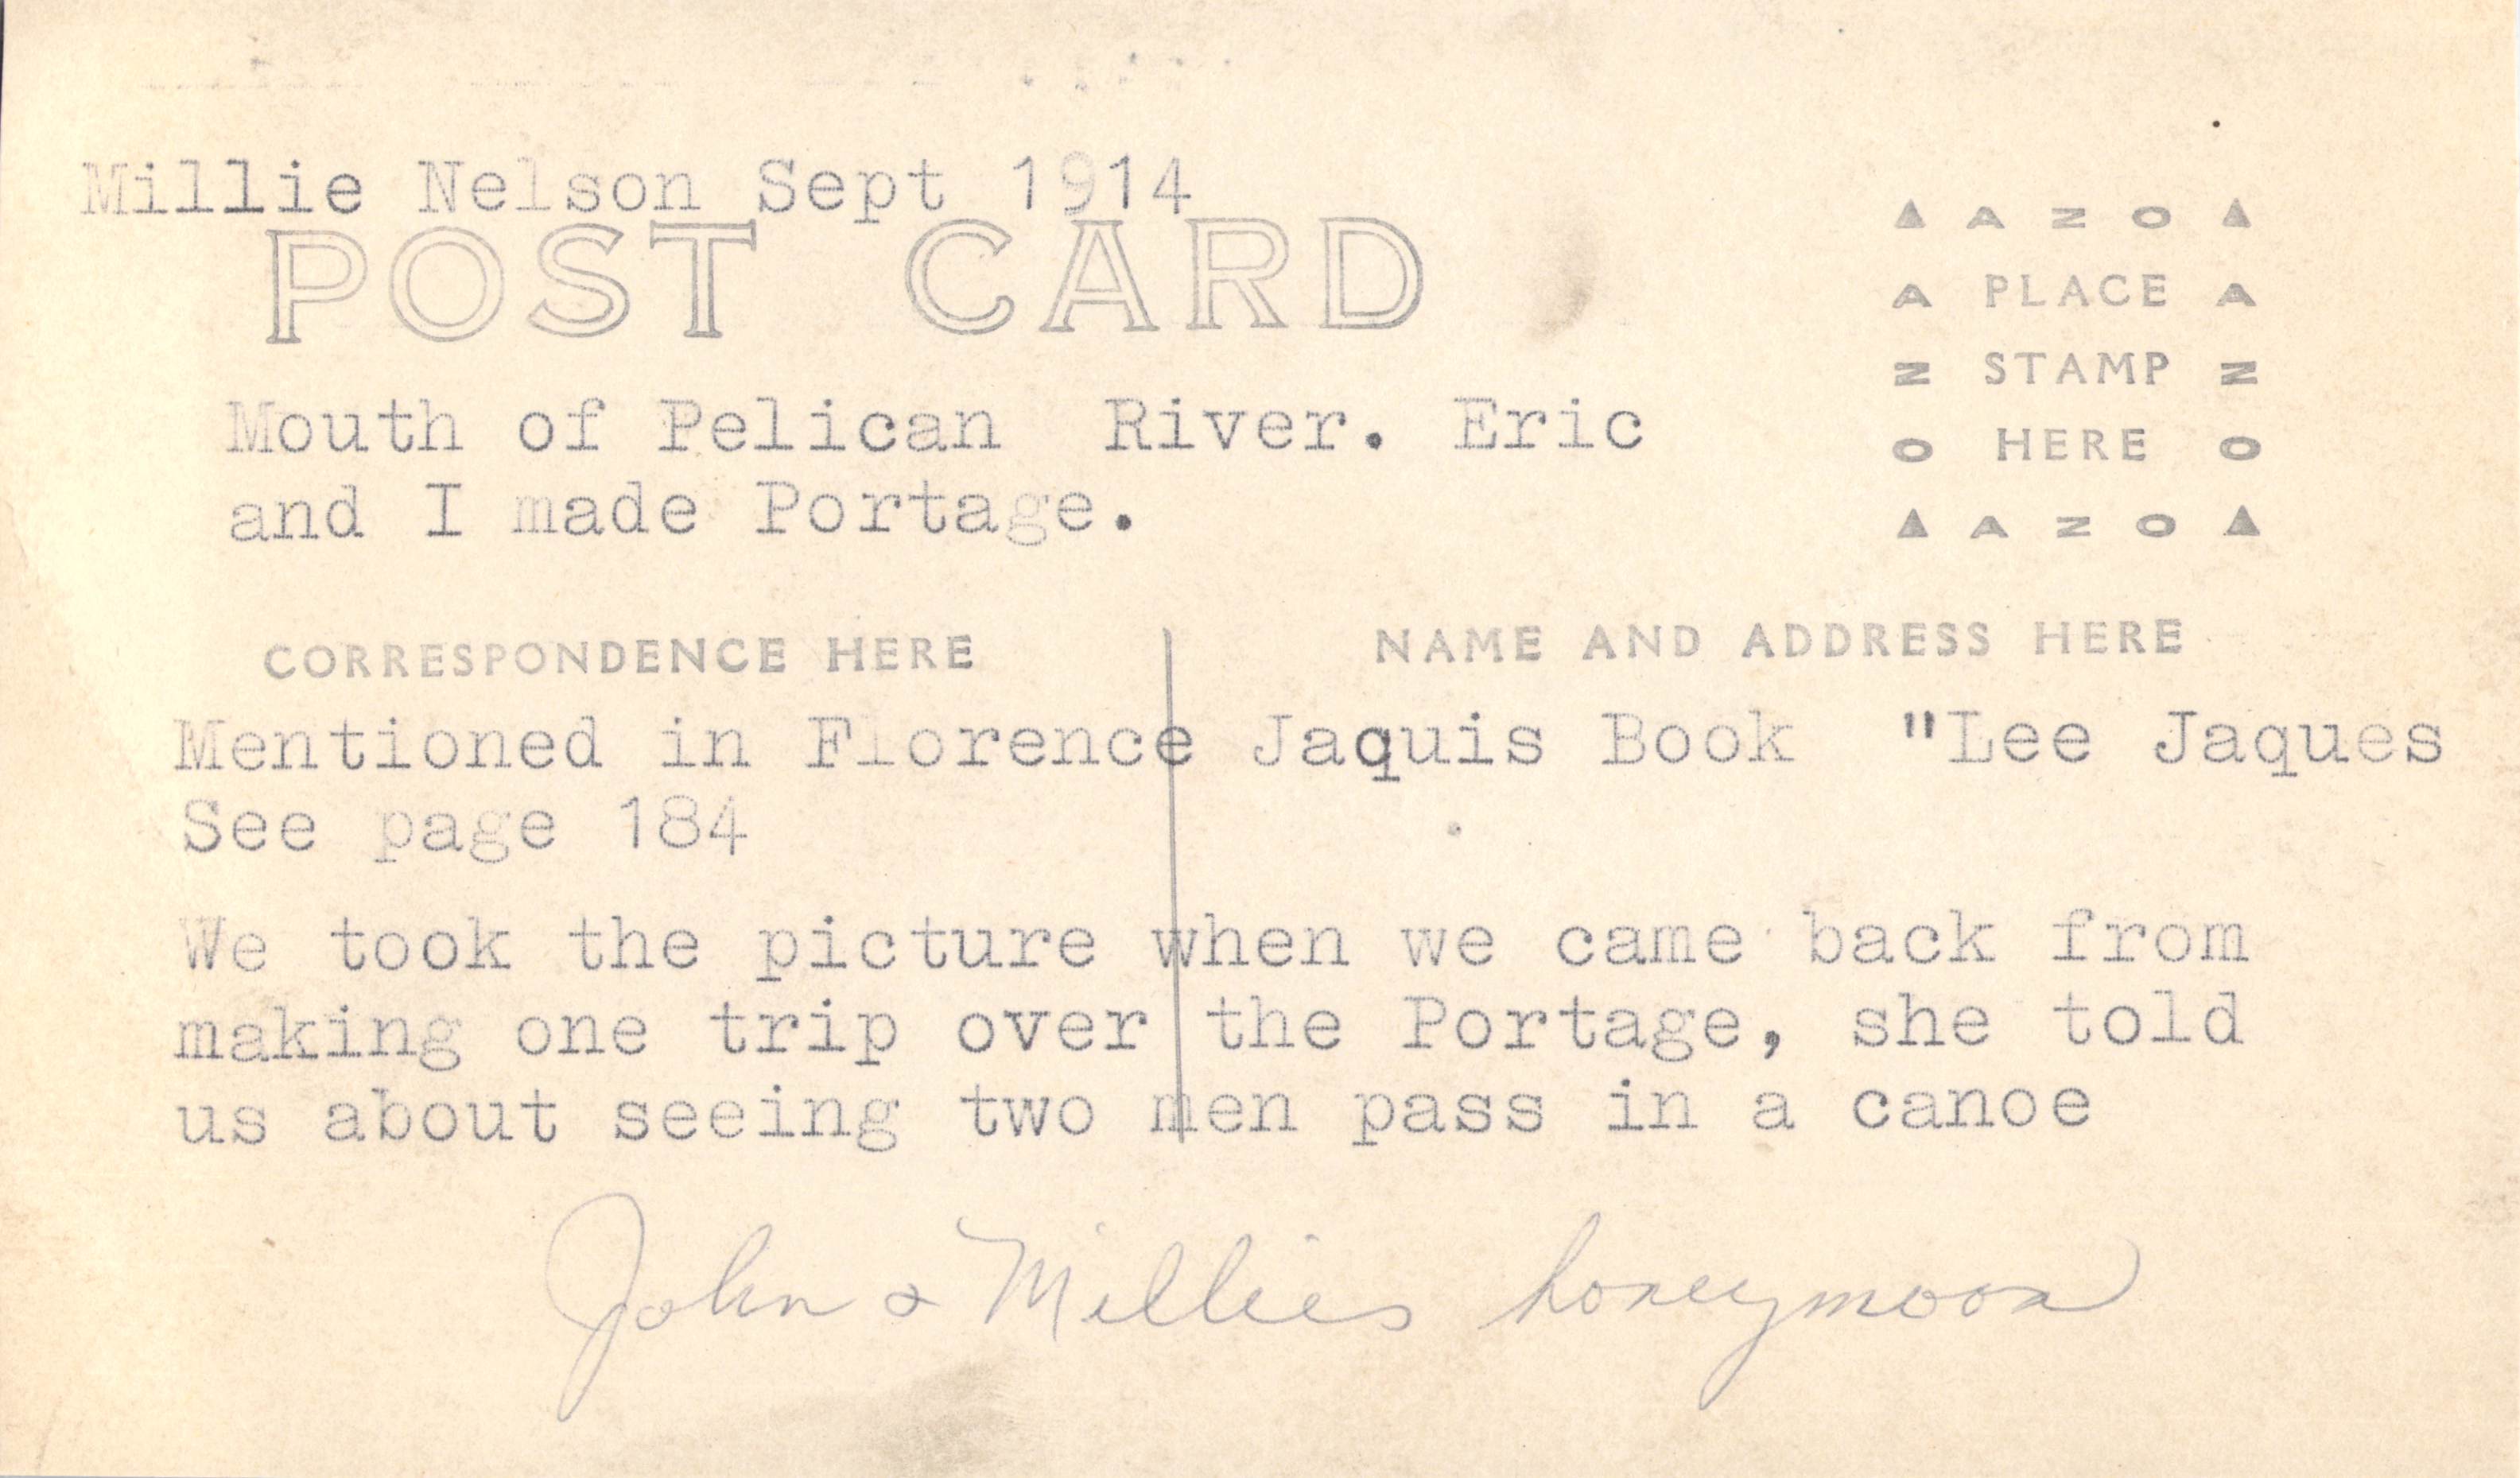 Millie Nelson Sept 1914
POST CARD
▲ A Z O ▲
A PLACE A
Z STAMP Z
O HERE O
▲ A Z O ▲
Mouth of Pelican  River. Eric
and I made Portage.
CORRESPONDENCE HERE
NAME AND ADDRESS HERE
Mentioned in Florence Jaquis Book  "Lee Jaques
See page 184
We took the picture when we came back from
making one trip over the Portage, she told
us about seeing two men pass in a canoe
John & Millies honeymoon